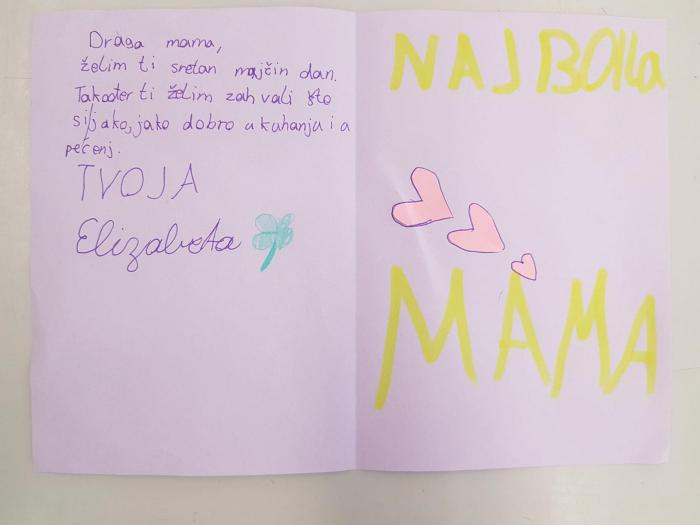 Draga mama,
želim ti sretan majčin dan.
Takooter ti želim zahvali što
si jako, jako dobro u kuhanju i a
pečenj.
TVOJA
Elizabeta
NAJBOlla
MAMA